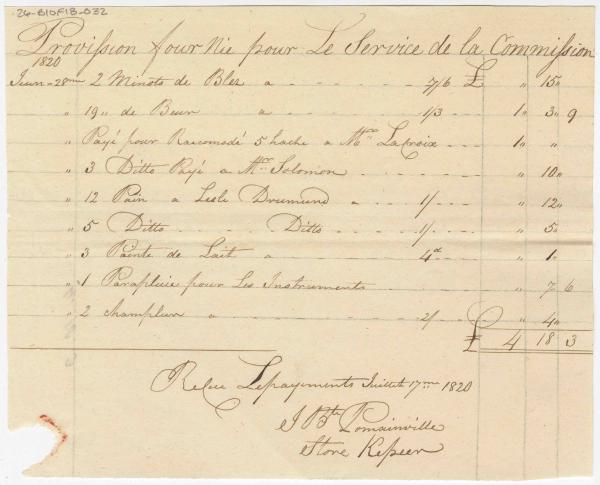 26-B10F1B-032
Provission fournie pour Le Service de la Commission
1820
Juin 28me 2 Minots de Blez a - - - 7/6 £ " 15 "
" 19 " de Beur a - - - 1/3 - - - 1 " 3 " 9
" Payé pour Racomodé 5 hache a Mr. LaCroix - - - 1 " "
" 3 Ditto Payé a Mr. Solomon - - - " 10 "
" 12 Pain a Lesle Drumund a - - 1/- - - " 12 "
" 5 Ditto - - - Ditto - - 1/- - - " 5 "
" 3 Painte de Lait a - - - 4d - - - " 1 "
" 1 Parapluie pour Les Instruments - - - " 7 " 6
" 2 Champlure a - - - 2/ - - - " 4 "
£ 4 18 3
Recue Lepayements Juillet 17me 1820
J Bte Pomainville
Store Kepeer